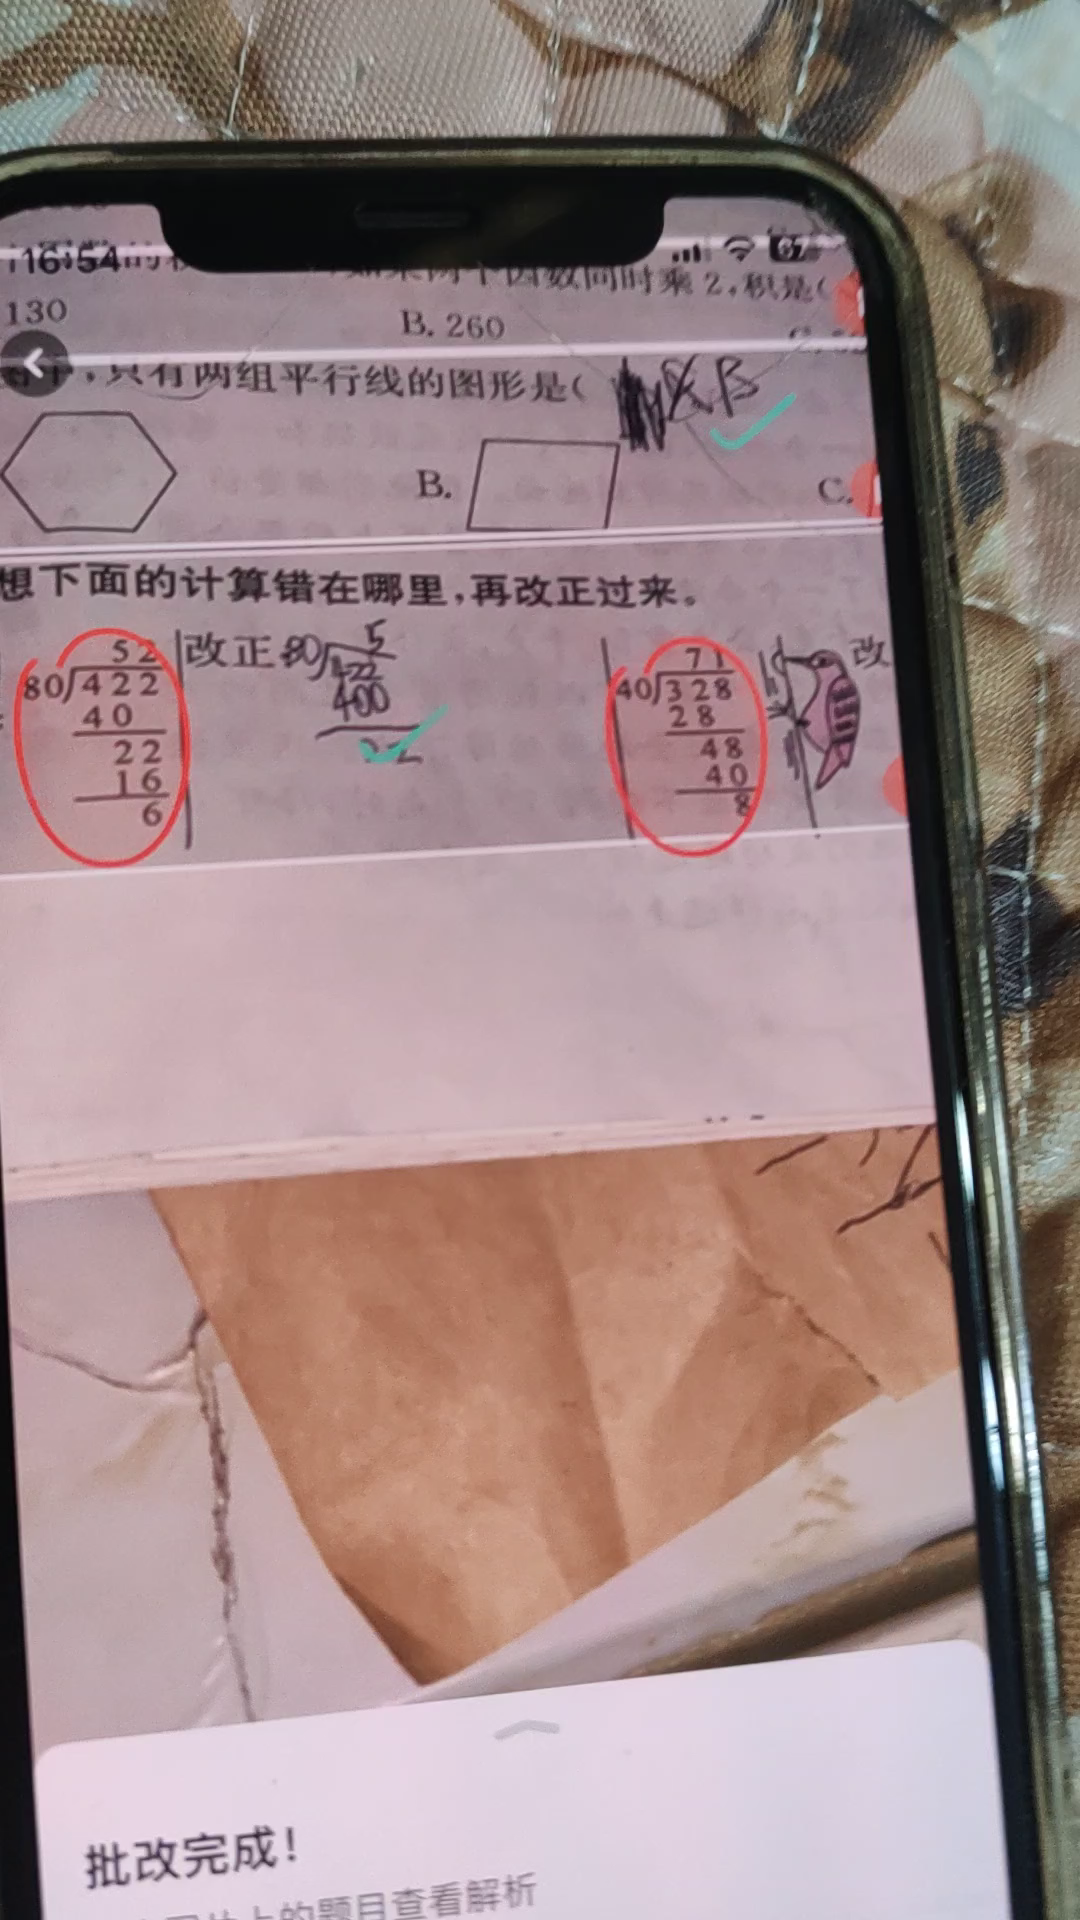 16:54
两个因数同时乘 2,积是(
130
B. 260
,只有两组平行线的图形是(
B
B.
C.
想下面的计算错在哪里,再改正过来。
52
80)422
40
22
16
6
改正
5
80)422
400
22
71
40)328
28
48
40
8
改
批改完成!
上的题目查看解析